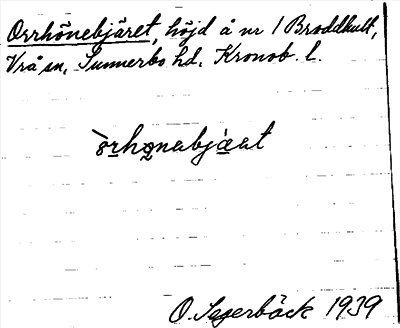 Orrhönebjäret, höjd å nr 1 Broddhult,
Vrå sn, Sunnerbo hd. Kronob. l.
òrhǫnabjàat
O. Segerbäck 1939